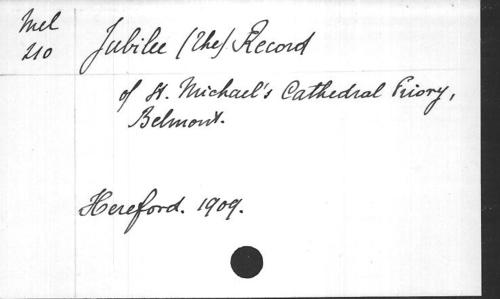 Mel
210
Jubilee (The) Record
of St. Michael's Cathedral Priory,
Belmont.
Hereford. 1909.